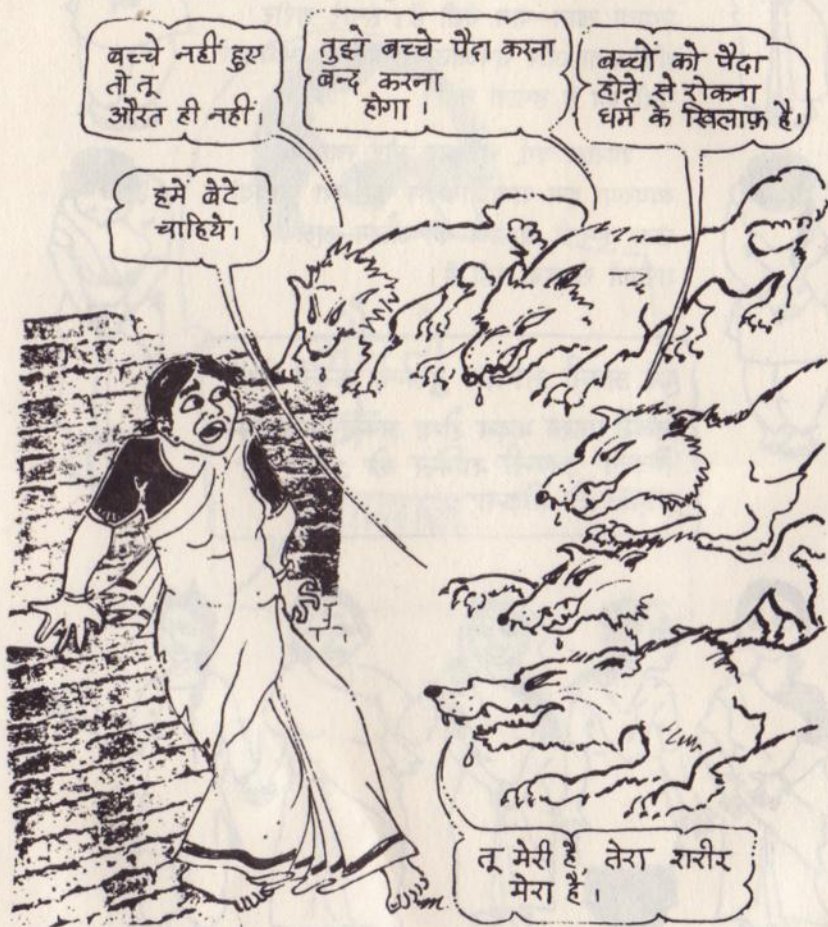 बच्चे नहीं हुए
तो तू
औरत ही नहीं।
तुझे बच्चे पैदा करना
बन्द करना
होगा।
बच्चों को पैदा
होने से रोकना
धर्म के खिलाफ़ है।
हमे बेटे
चाहिये।
तू मेरी है, तेरा शरीर
मेरा है।